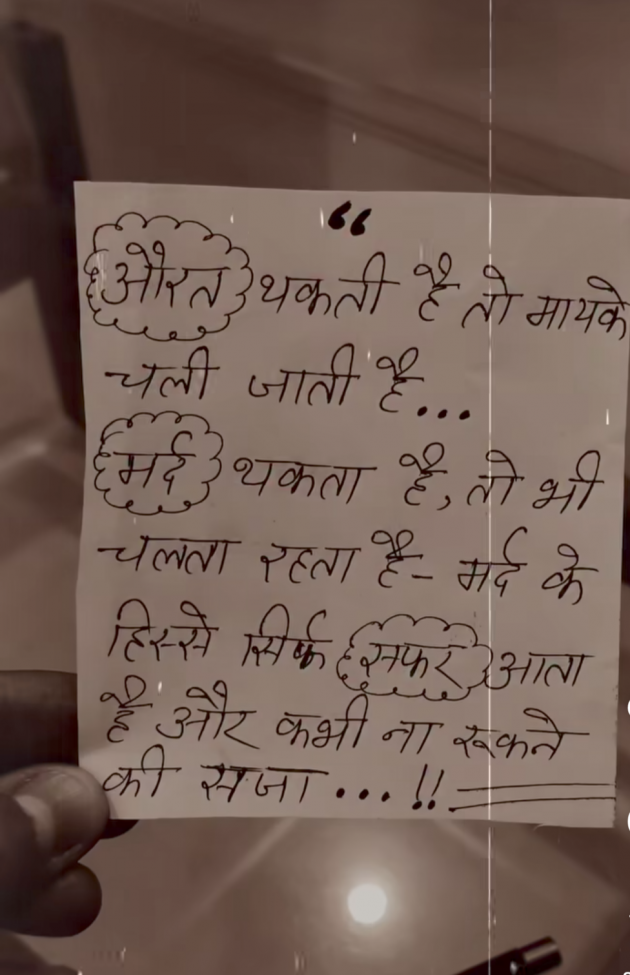 “
औरत थकती है तो मायके
चली जाती है...
मर्द थकता है, तो भी
चलता रहता है- मर्द के
हिस्से सिर्फ सफर आता
है और कभी ना रूकने
की सजा...!!